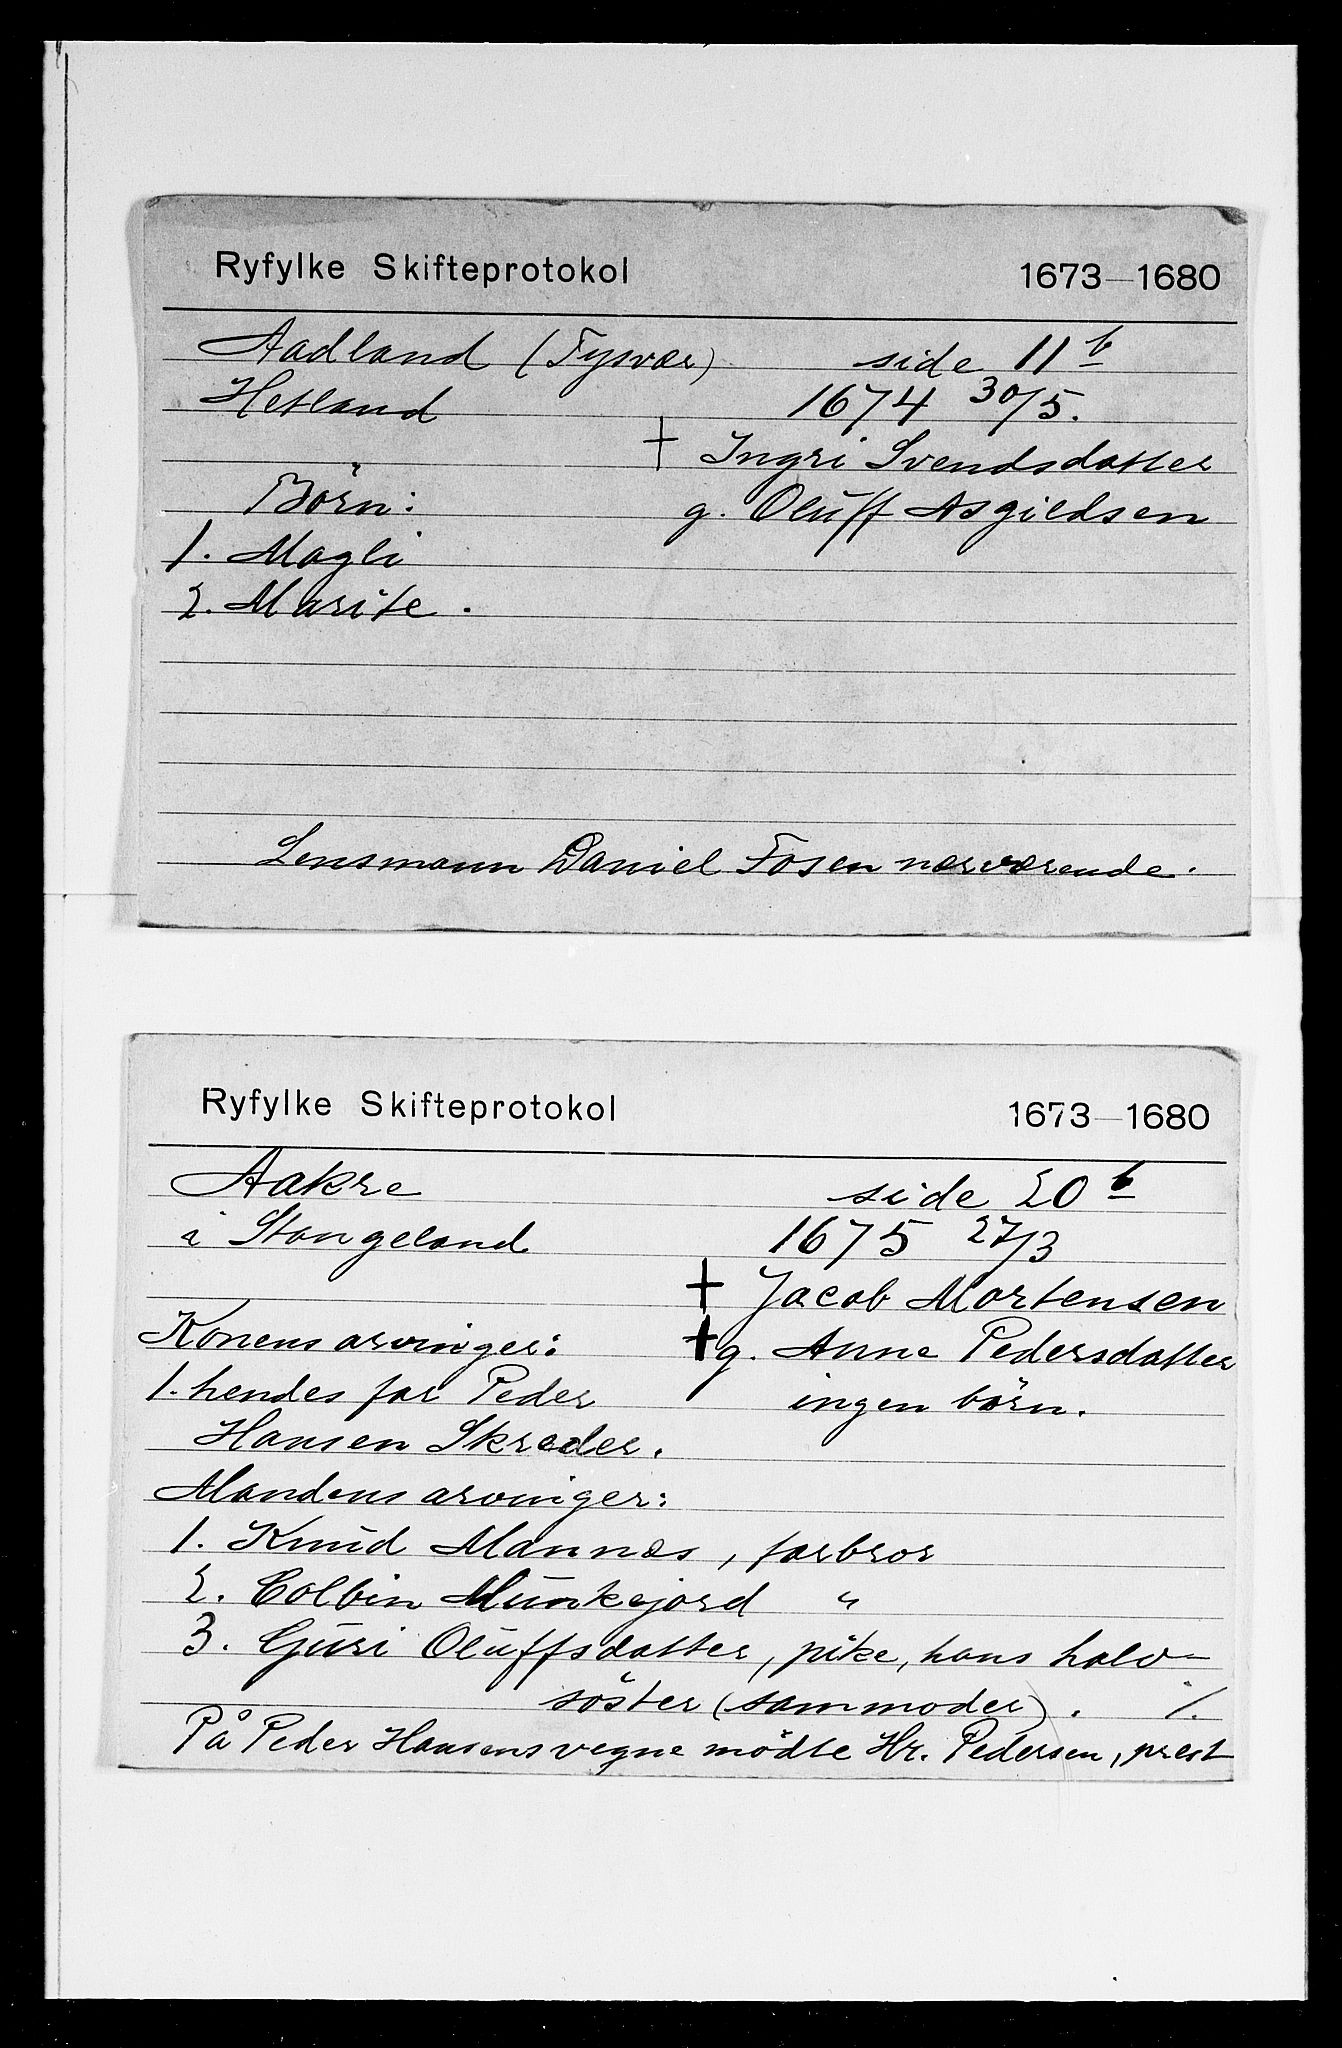 Ryfylke Skifteprotokol 1673-1680
Aadland (Tysvær) side 11 b
Hetland 1674 30/5.
† Ingri Svendsdatter
Börn: g. Olŭff Asgieldsen
1. Magli
2. Marite.
Lensmann Daniel Fosen nærværende.
Ryfylke Skifteprotokol 1673-1680
Aakre side 20 b
i Stangeland 1675 27/3
† Jacob Mortensen
Konens arvinger: † g. Anne Pedersdatter
1. hendes far Peder ingen börn.
Hansen Skræder.
Mandens arvinger:
1. Knŭd Mannæs, farbror
2. Colbin Mŭnkejord "
3. Gŭri Olŭffsdatter, pike, hans halv-
söster (sammoder). ⁒
På Peder Hansens vegne mödte Hr. Pedersen, prest